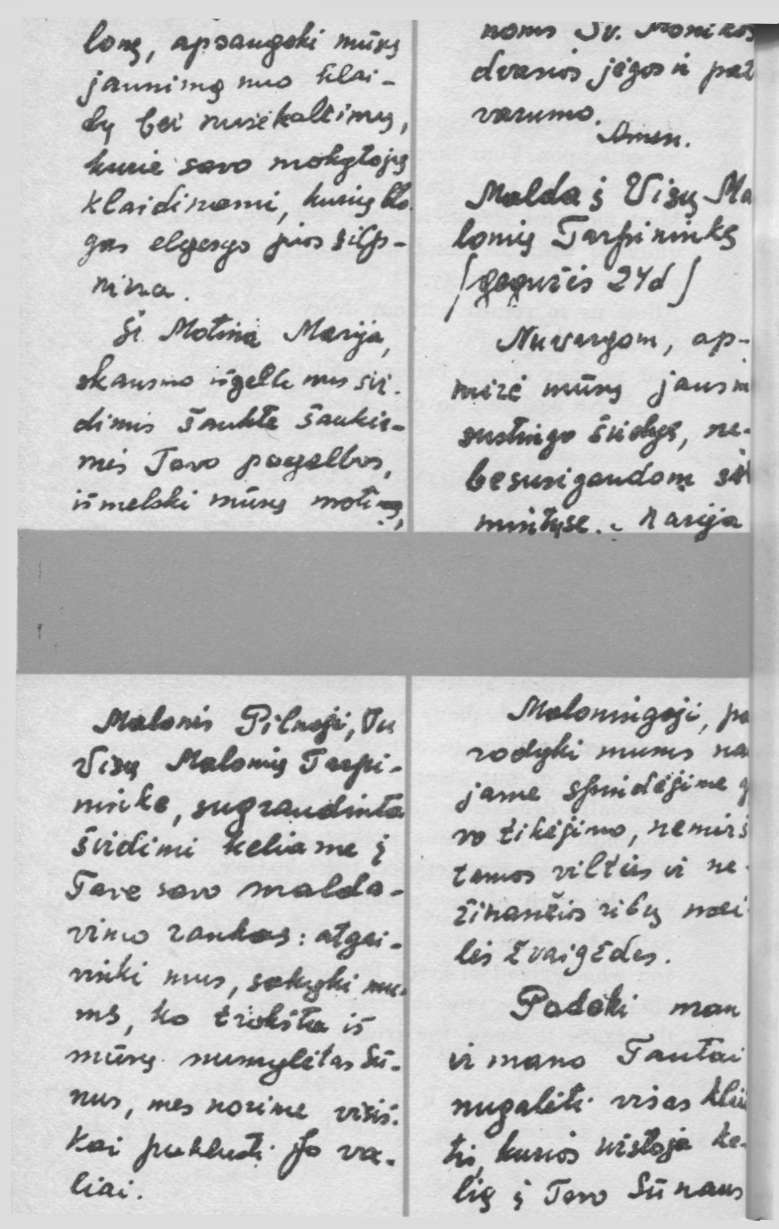 lonę, apsaugoki mūsų
jaunimą nuo klai-
dų bei nusikaltimų,
kurie savo mokytojų
klaidinami, kurių blo-
gas elgesys juos silp-
nina.
Ši Motina Marija,
skausmo išgelta
dimis šaukte šaukia-
mės Tavo pagalbos,
išmelski mūsų motinų
noms Šv. Monikos
dvasios jėgos ir pat
varumo.
Amen.
Malda į Visų Ma
lonių Tarpininkę
/gegužės 24d/
Nuvargom, ap-
mirė mūsų jausm
sustingo širdys, ne-
besusigaudom sa
mintyse. Marija
Malonės Pilnoji, Tu
Visų Malonių Tarpi-
ninke, sugraudinta
širdimi keliame į
Tave savo malda-
vimo rankas: atgai-
vinki mus, sakyki mu-
ms, ko trokšta iš
mūsų numylėtas Sū-
nus, mes norime visiš-
kai paklusti Jo va-
liai.
Maloningoji, pa
rodyki mums na
jame spindėjime g
vo tikėjimo, nemirš
tamos vilties ir ne-
žinančios ribų mei-
lės žvaigždes.
Padėki man
ir mano Tautai
nugalėti visas kliū
tis, kurios iškyla ke-
lią į Tavo Sūnaus